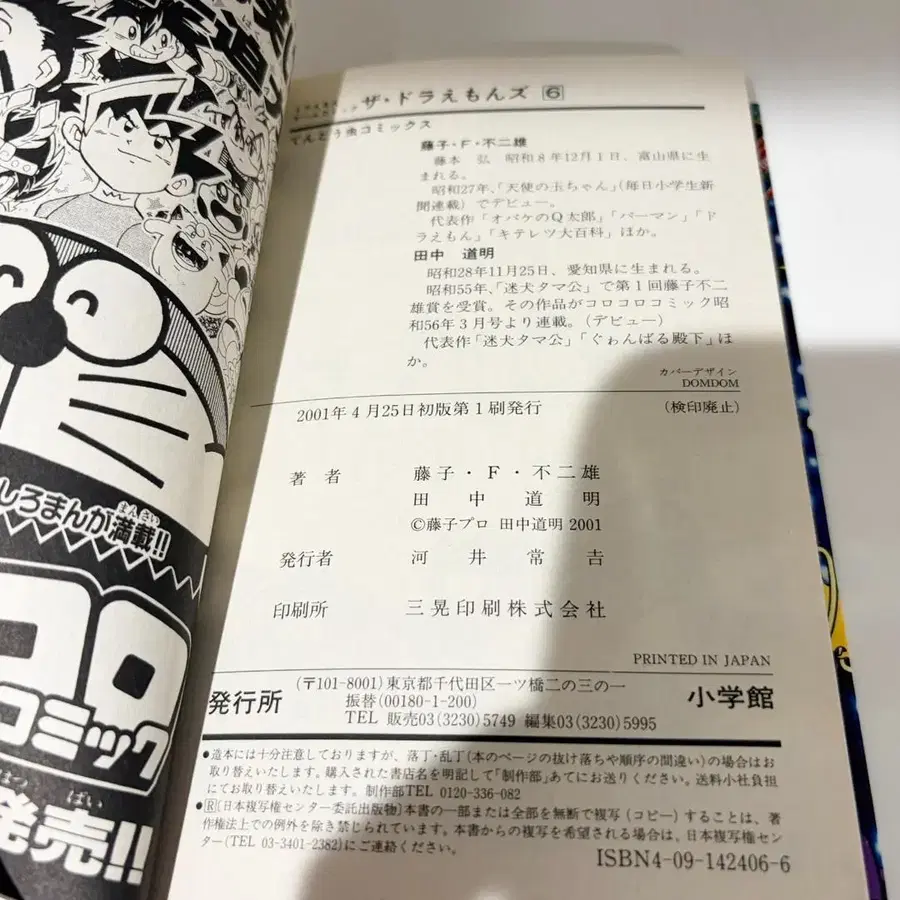 ザ・ドラえもんズ 6
てんとう虫コミックス
藤子・F・不二雄
藤本 弘 昭和8年12月1日、富山県に生
まれる。
昭和27年、「天使の玉ちゃん」(毎日小学生新
聞連載)でデビュー。
代表作「オバケのQ太郎」「パーマン」「ド
ラえもん」「キテレツ大百科」ほか。
田中 道明
昭和28年11月25日、愛知県に生まれる。
昭和55年、「迷犬タマ公」で第1回藤子不二
雄賞を受賞。その作品がコロコロコミック昭
和56年3月号より連載。(デビュー)
代表作「迷犬タマ公」「ぐゎんばる殿下」ほ
か。
カバーデザイン
DOMDOM
2001年4月25日初版第1刷発行
(検印廃止)
著者 藤子・F・不二雄
田中道明
©藤子プロ 田中道明 2001
発行者 河井常吉
印刷所 三晃印刷株式会社
PRINTED IN JAPAN
発行所
(〒101-8001)東京都千代田区一ツ橋二の三の一
振替(00180-1-200)
TEL 販売03(3230)5749 編集03(3230)5995
小学館
●造本には十分注意しておりますが、落丁・乱丁(本のページの抜け落ちや順序の間違い)の場合はお
取り替えいたします。購入された書店名を明記して「制作部」あてにお送りください。送料小社負担
にてお取り替えいたします。制作部TEL 0120-336-082
●R[日本複写権センター委託出版物]本書の一部または全部を無断で複写(コピー)することは、著
作権法上での例外を除き禁じられています。本書からの複写を希望される場合は、日本複写権セン
ター(TEL 03-3401-2382)にご連絡ください。
ISBN4-09-142406-6
しろまんが満載!!
まんさい
コロ
コミック
発売!!
ばい